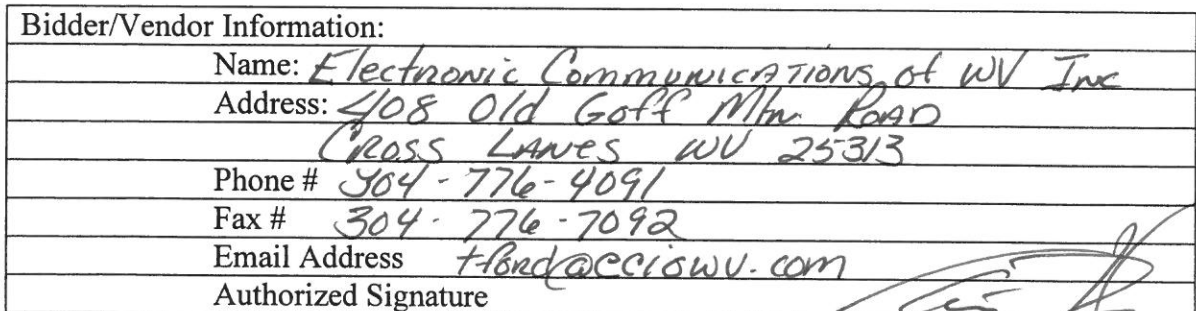 Bidder/Vendor Information:
Name: Electronic Communications of WV Inc
Address: 408 Old Goff Mtn. Road
Cross Lanes WV 25313
Phone # 304-776-4091
Fax # 304-776-7092
Email Address
Authorized Signature